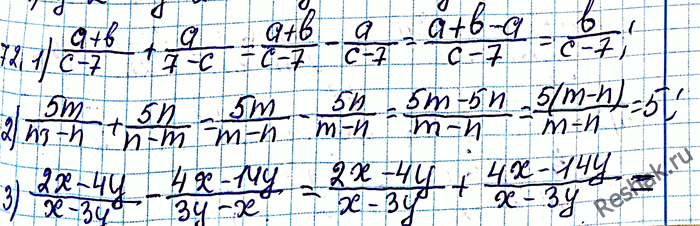 72. 1) (a+b)/(c-7) + a/(7-c) = (a+b)/(c-7) - a/(c-7) = (a+b-a)/(c-7) = b/(c-7);
2) 5m/(m-n) + 5n/(n-m) = 5m/(m-n) - 5n/(m-n) = (5m-5n)/(m-n) = 5(m-n)/(m-n) = 5;
3) (2x-4y)/(x-3y) - (4x-14y)/(3y-x) = (2x-4y)/(x-3y) + (4x-14y)/(x-3y) =
Reshak.ru